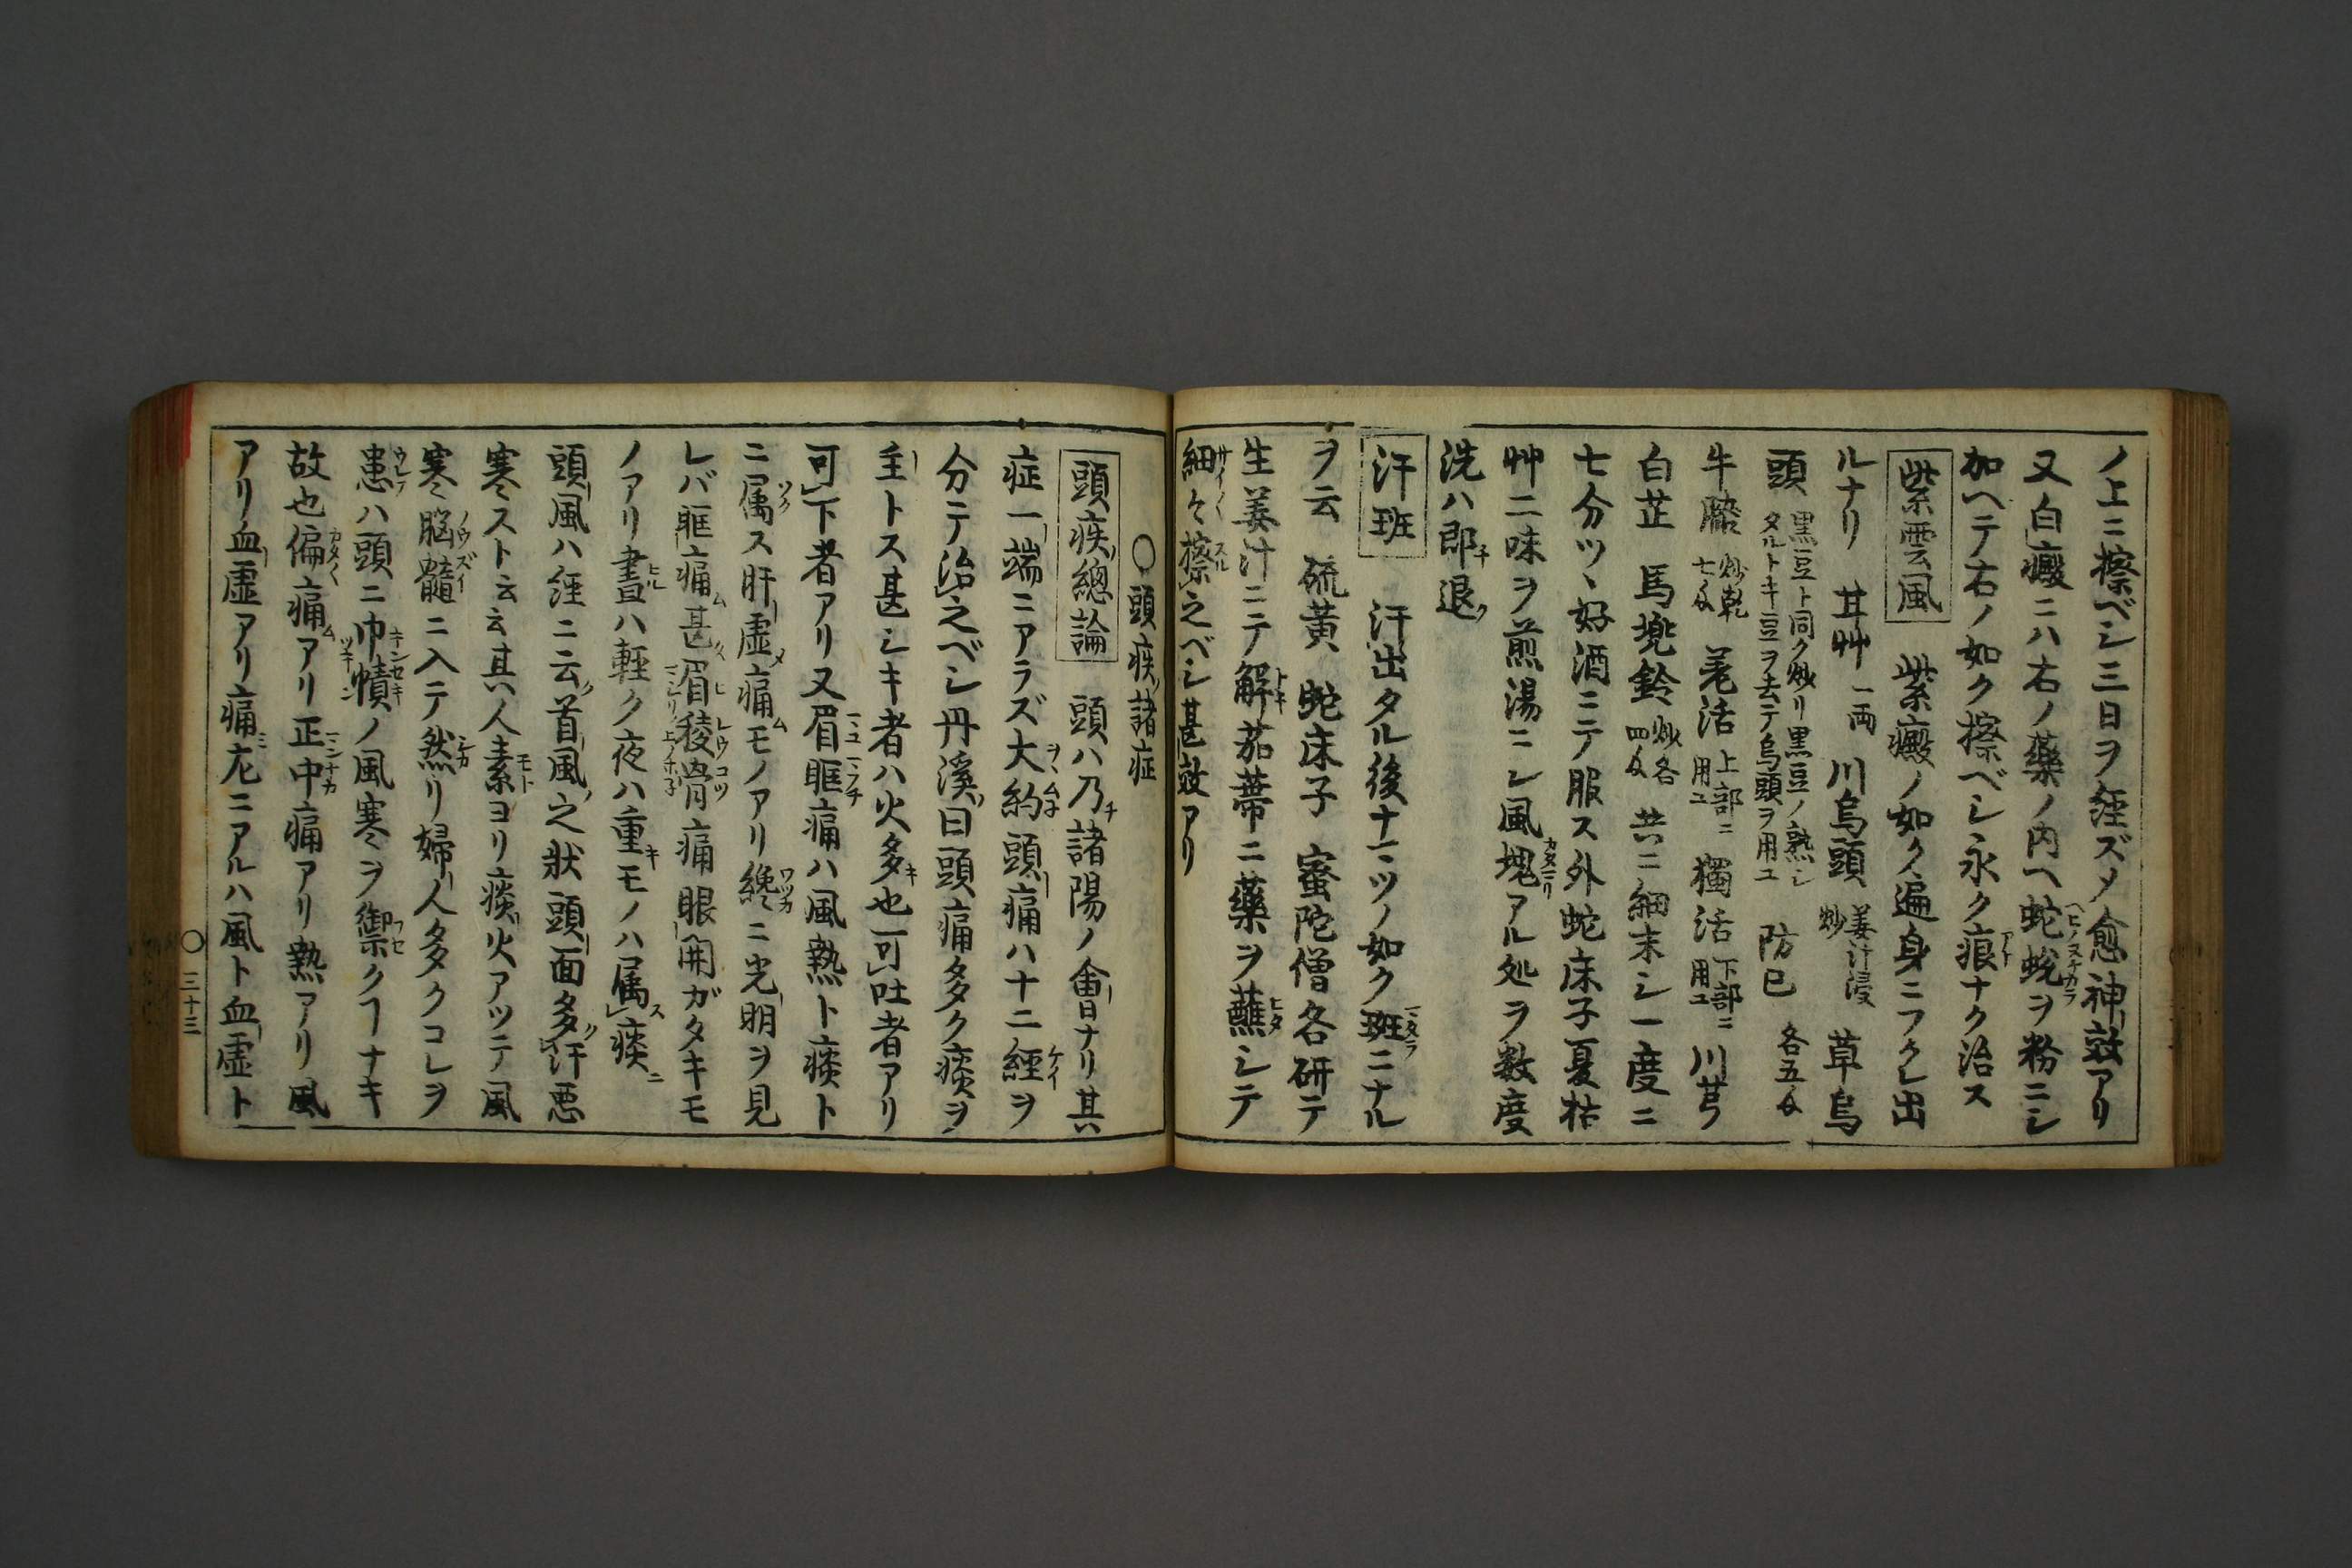 ノ上ニ擦ベシ三日ヲ経ズ〆愈神效アリ
又白癜ニハ右ノ藥ノ内ヘ蛇蛻ヲ粉ニシ
加ヘテ右ノ如ク擦ベシ永ク痕ナク治ス
紫雲風 紫癜ノ如ク遍身ニフクレ出
ルナリ 甘艸一両 川烏頭姜汁浸炒 草烏
頭黒豆ト同ク炒リ黒豆ノ熟シタルトキ豆ヲ去テ烏頭ヲ用ユ 防已各五匁
牛膝炒乾七匁 羌活上部ニ用ユ 獨活下部ニ用ユ 川芎
白芷 馬兜鈴炒各四匁 共ニ細末シ一度ニ
七分ツヽ好酒ニテ服ス外蛇床子夏枯
艸二味ヲ煎湯ニシ風塊アル処ヲ数度
洗ハ即チ退ク
汗班 汗出タル後ナマツノ如ク班ニナル
ヲ云 硫黄 蛇床子 蜜陀僧各研テ
生姜汁ニテ解茄蒂ニ藥ヲ蘸シテ
細々擦之ベシ甚效アリ
○頭疾諸症
頭疾總論 頭ハ乃チ諸陽ノ會ナリ其
症一端ニアラズ大約頭痛ハ十二經ヲ
分テ治之ベシ丹溪曰頭痛多ク痰ヲ
主トス甚シキ者ハ火多キ也可吐者アリ
可下者アリ又眉眶痛ハ風熱ト痰ト
ニ属ス肝虚痛ムモノアリ纔ニ光明ヲ見
レバ眶痛ム甚眉稜骨痛眼開ガタキモ
ノアリ晝ハ輕ク夜ハ重キモノハ属ス痰ニ
頭風ハ経ニ云ク首風之狀頭面多汗悪
寒スト云云其人素ヨリ痰火アツテ風
寒脳髓ニ入テ然リ婦人多クコレヲ
患ハ頭ニ巾幘ノ風寒ヲ禦クヿナキ
故也偏痛ムアリ正中痛アリ熱アリ風
アリ血虚アリ痛左ニアルハ風ト血虚ト
○三十三